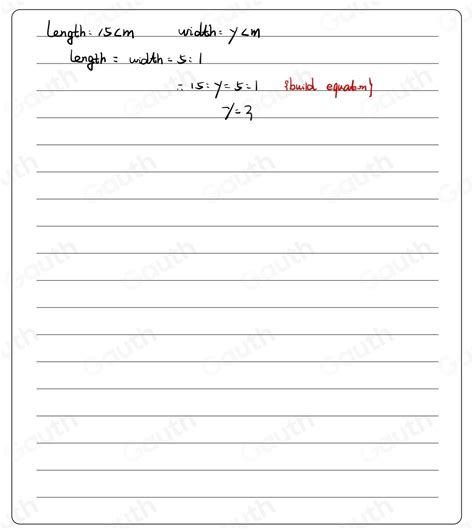 length: 15cm width: y cm
length : width = 5:1
∴ 15:y = 5:1 {build equation}
y=3